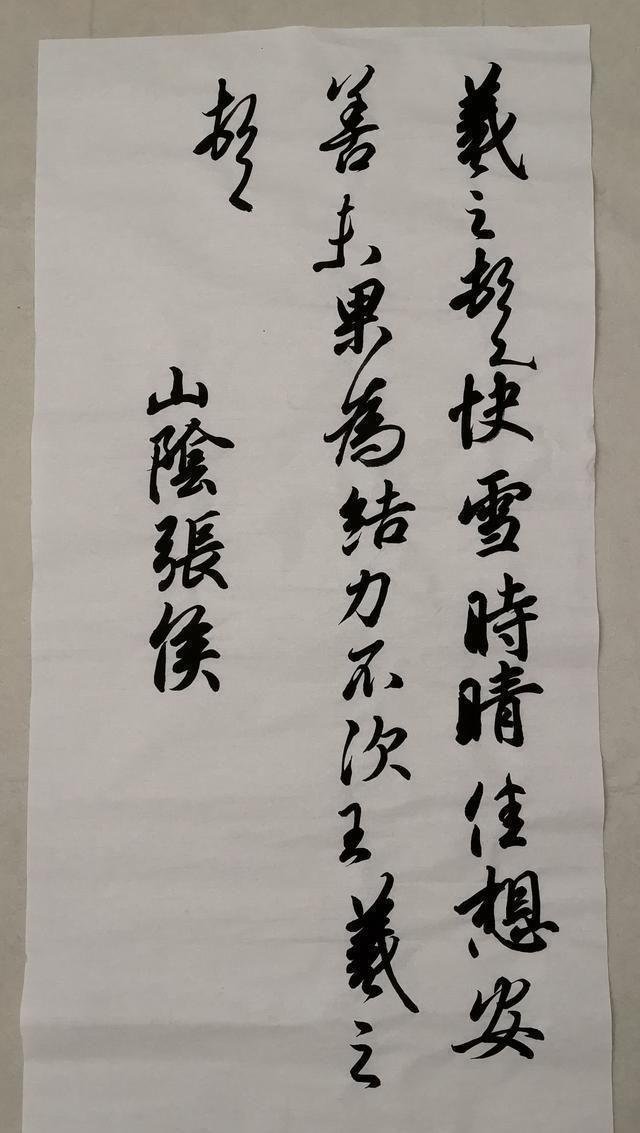 羲之頓首快雪時晴佳想安
善未果為結力不次王羲之
頓首
山陰張侯